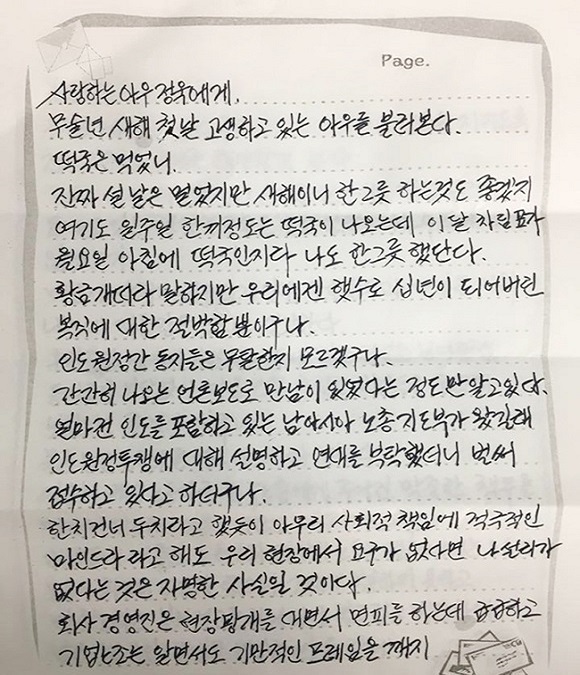 Page.
사랑하는 아우 정욱에게.
무술년 새해 첫날 고생하고 있는 아우를 불러본다.
떡국은 먹었니.
진짜 설 날은 멀었지만 새해이니 한그릇 하는것도 좋겠지
여기도 일주일 한끼정도는 떡국이 나오는데 이달 차림표가
월요일 아침에 떡국인지라 나도 한그릇 했단다.
황금개띠라 말하지만 우리에겐 햇수로 십년이 되어버린
복직에 대한 절박함뿐이구나.
인도원정간 동지들은 무탈한지 모르겠구나.
간간히 나오는 언론보도로 만남이 있었다는 정도만 알고있다.
얼마전 인도를 포함하고 있는 남아시아 노총지도부가 왔길래
인도원정투쟁에 대해 설명하고 연대를 부탁했더니 벌써
접수하고 있다고 하더구나.
한치건너 두치라고 했듯이 아무리 사회적 책임에 적극적인
마인드라 라고 해도 우리 현장에서 요구가 없다면 나설리가
없다는 것은 자명한 사실일 것이다.
회사 경영진은 현장핑개를 대면서 면피를 하는데 급급하고
기업노조는 알면서도 기만적인 프레임을 깨지